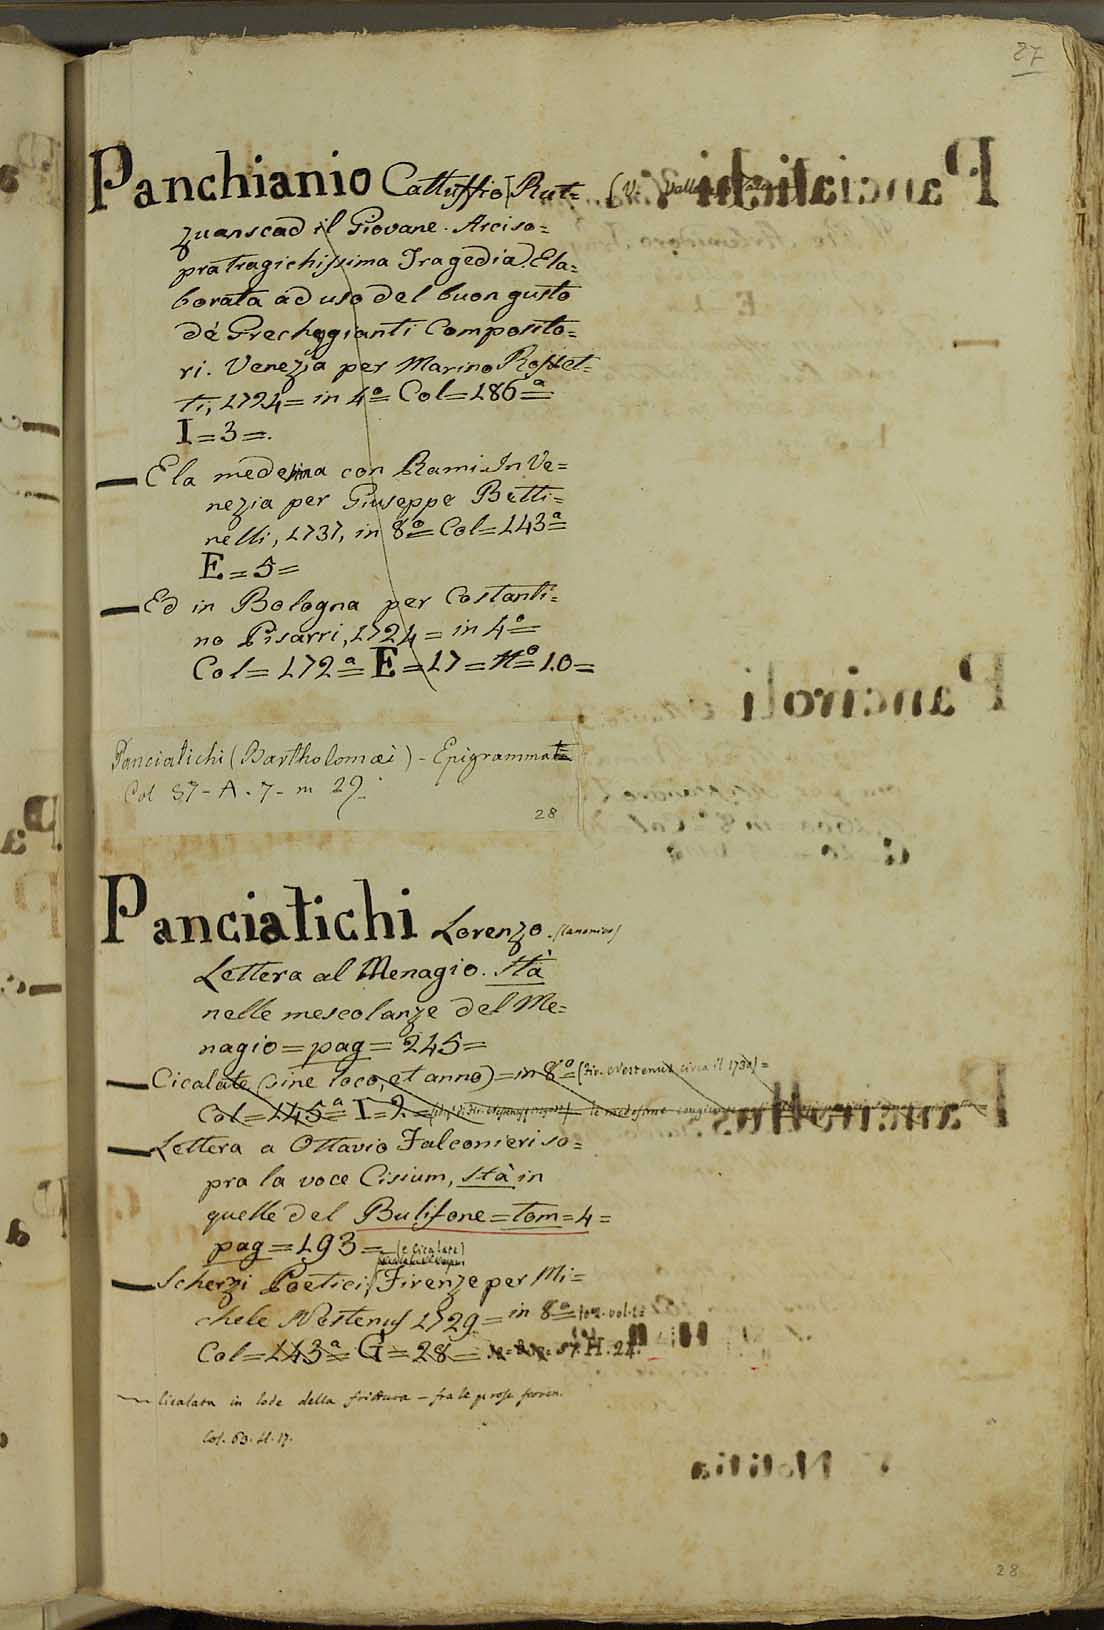 27
Panchianio Cattuffio Rut= (V. Vallaresso
zuanscad il Giovane. Arciso=
pratragichissima Tragedia. Ela=
borata ad uso del buon gusto
de' Grecheggianti Composito=
ri. Venezia per Marino Rosset=
ti, 1724 = in 4º = Col = 186ª =
I = 3 =.
E la medesima con Rami. In Ve=
nezia per Giuseppe Betti=
nelli, 1737, in 8º = Col = 143ª =
E = 5 =
Ed in Bologna per Costanti=
no Pisarri, 1724 = in 4º =
Col = 172ª = E = 17 = Nº = 10 =
Panciatichi (Bartholomæi) - Epigrammata
Col 57 - A. 7 - m 29.
28
Panciatichi Lorenzo. (Canonico)
Lettera al Menagio. Stà
nelle mescolanze del Me=
nagio = pag = 245 =
Cicalate (sine loco, et anno) = in 8º = (Fir. Nestenus circa il 1730) =
Col = 145ª = I = 2. = le medesime
Lettera a Ottavio Falconieri so=
pra la voce Cisium, Stà in
quelle del Bulifone = tom = 4 =
pag = 193 =
(e Cicalate)
Scherzi Poetici Firenze per Mi=
chele Nestenus 1729 = in 8º =
Col = 143ª = G = 28 = 57. H. 22.
Cicalata in lode della frittura - fra le prose fioren.
Col. 63. H. 17.
28